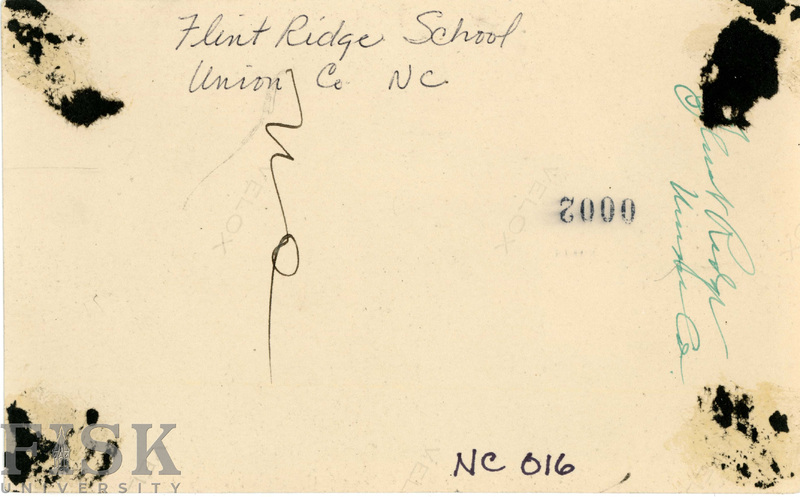 Flint Ridge School
Union Co NC
Flint Ridge
Union Co
0002
NC 016
VELOX
VELOX
FISK
UNIVERSITY